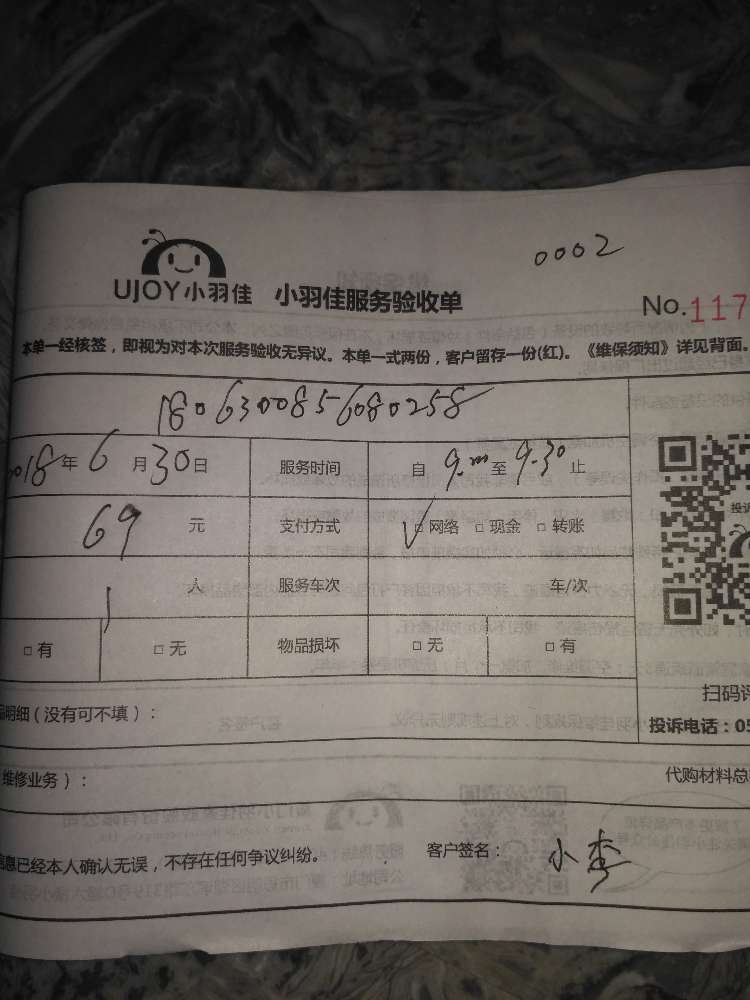 0002
UJOY小羽佳 小羽佳服务验收单
No.117
本单一经核签，即视为对本次服务验收无异议。本单一式两份，客户留存一份(红)。《维保须知》详见背面。
1806300856080258
2018年6月30日 服务时间 自 9.00 至 9.30 止
69 元 支付方式 □网络 □现金 □转账
1 人 服务车次 车/次
□有 □无 物品损坏 □无 □有
明细（没有可不填）：
扫码评
投诉电话：05
维修业务）：
代购材料总
信息已经本人确认无误，不存在任何争议纠纷。
客户签名： 小李